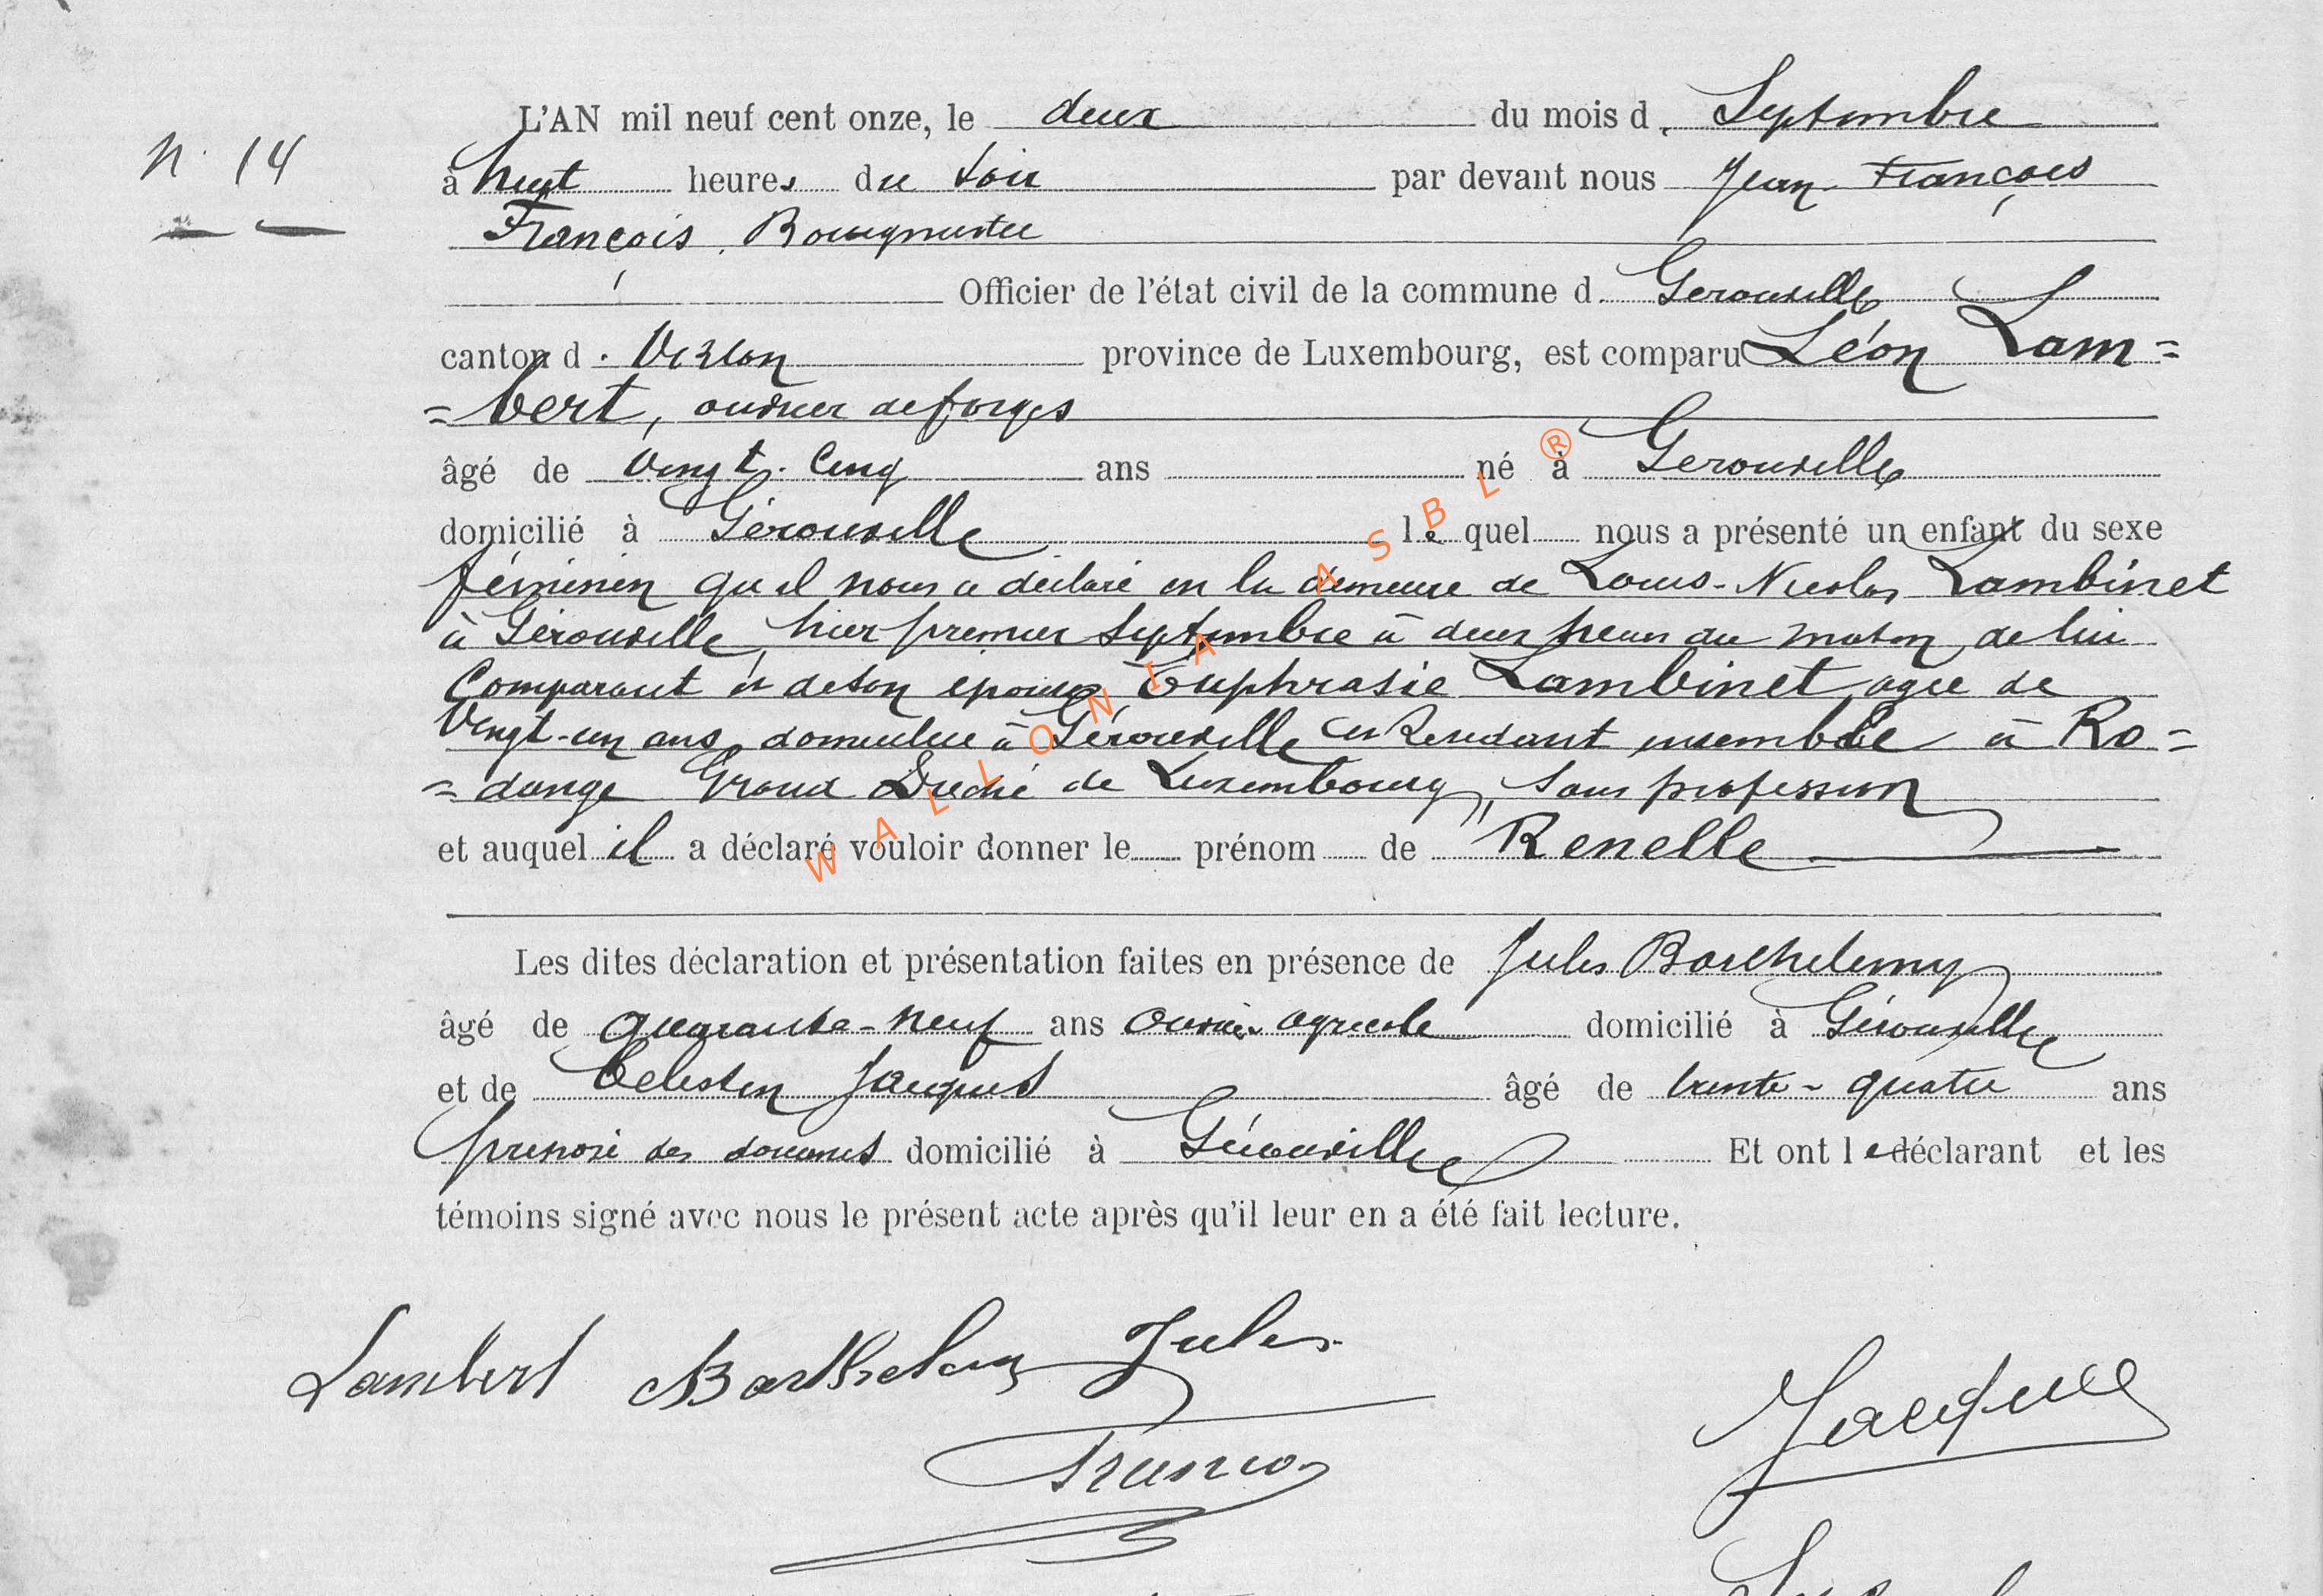 N. 14
L'AN mil neuf cent onze, le deux du mois d. Septembre
à huit heures du soir par devant nous Jean-François
François, Bourgmestre
Officier de l'état civil de la commune d. Gerouville
canton d. Virton province de Luxembourg, est comparu Léon Lam=
=bert, ouvrier de forges
âgé de Vingt-Cinq ans né à Gerouville
domicilié à Gérouville lequel nous a présenté un enfant du sexe
féminin qu'il nous a déclaré en la demeure de Louis-Nicolas Lambinet
à Gérouville, hier premier Septembre à deux heures du matin, de lui
Comparant et de son épouse Euphrasie Lambinet agée de
Vingt-un ans domiciliée à Gérouville Résidant ensemble à Ro=
=dange Grand Duché de Luxembourg, sans profession
et auquel il a déclaré vouloir donner le prénom de Renelle
Les dites déclaration et présentation faites en présence de Jules Barthelemy
âgé de quarante-neuf ans ouvrier agricole domicilié à Gérouville
et de Celestin Jacques âgé de trente-quatre ans
préposé des douanes domicilié à Gérouville Et ont le déclarant et les
témoins signé avec nous le présent acte après qu'il leur en a été fait lecture.
Lambert Barthelemy Jules
Jacques
François
WALLONIA ASBL ®